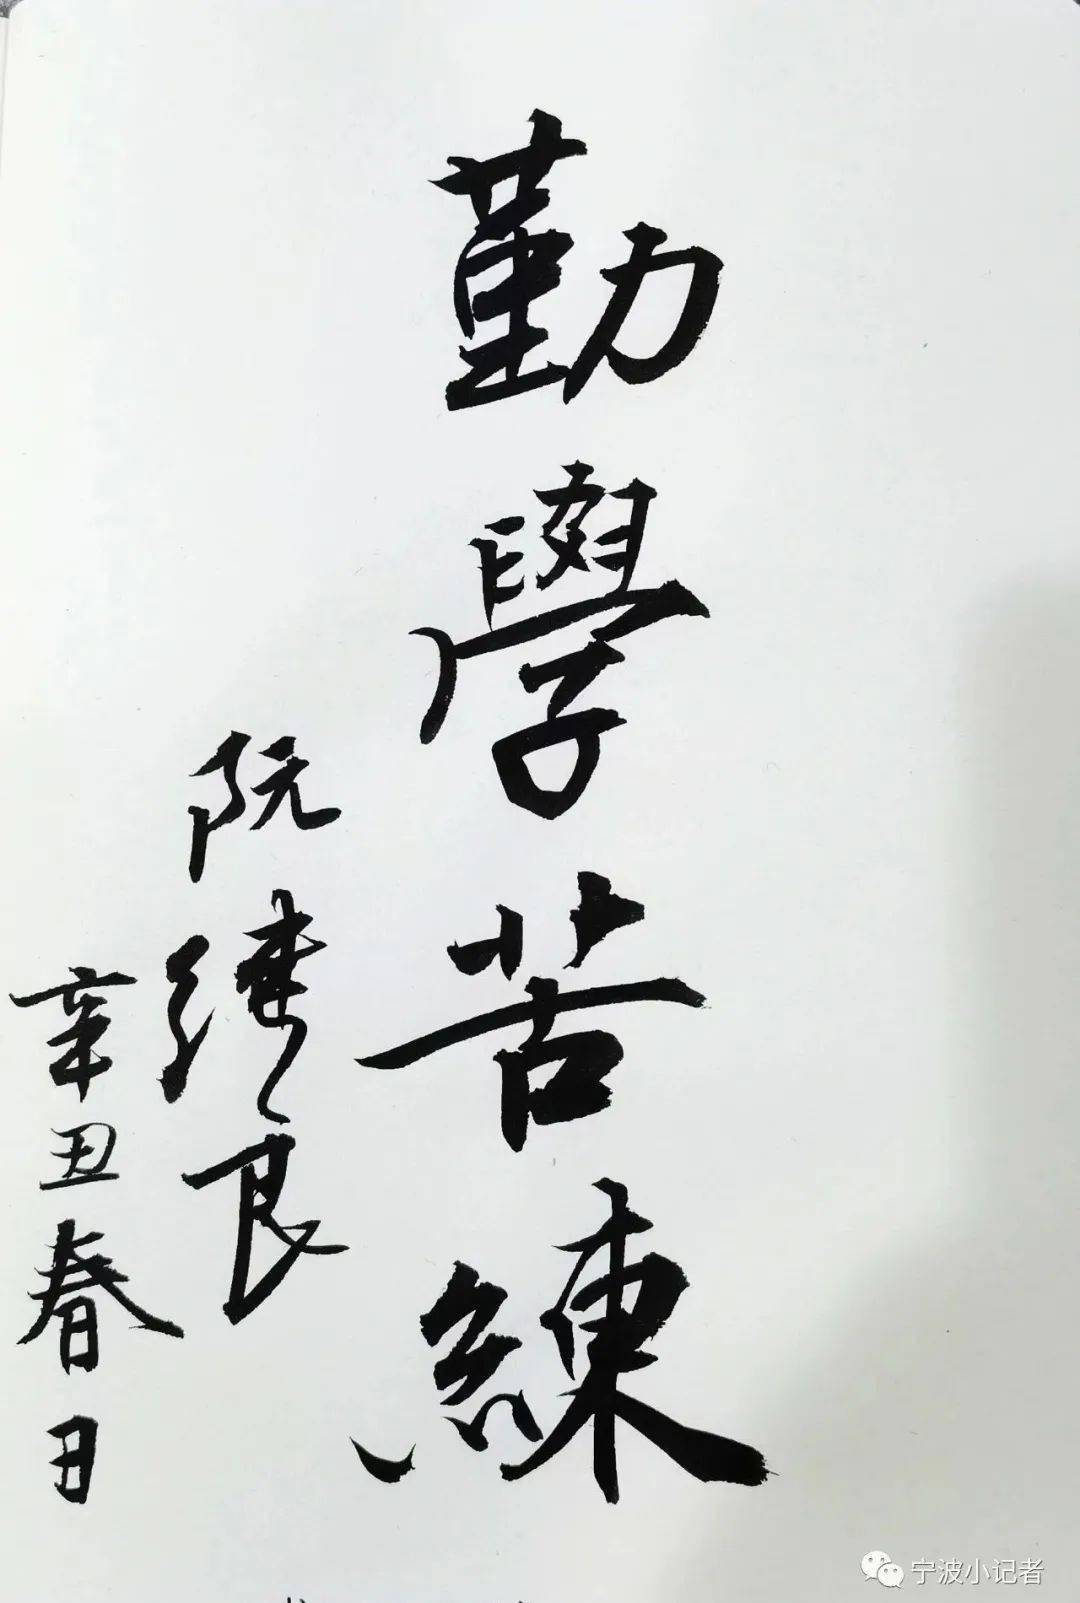 勤學苦練
阮 良
辛丑春日
宁波小记者